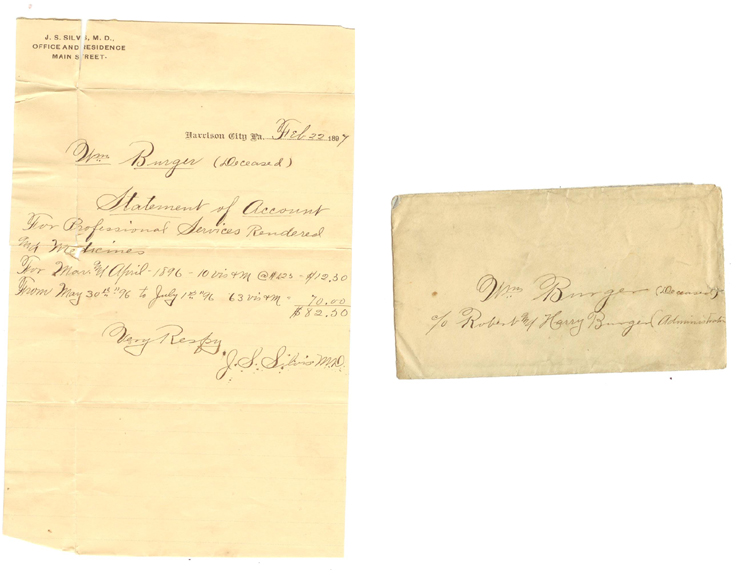 J. S. SILVIS, M. D.,
OFFICE AND RESIDENCE
MAIN STREET.
Harrison City Pa. Feb 22 1897
Wm Burger (Deceased)
Statement of Account
For Professional Services Rendered
and Medicines
For Mar & April - 1896 - 10 vis & M @ $1.25 - $12.50
From May 30th '96 to July 1st '96 - 63 vis & M - 70.00
$82.50
Very Respy
J. S. Silvis M.D.
Wm Burger (Deceased)
c/o Robert & Harry Burger (Administrators